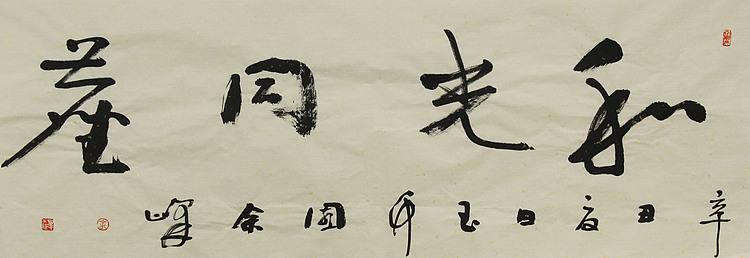 和光同塵
辛丑夏日玉園余峰